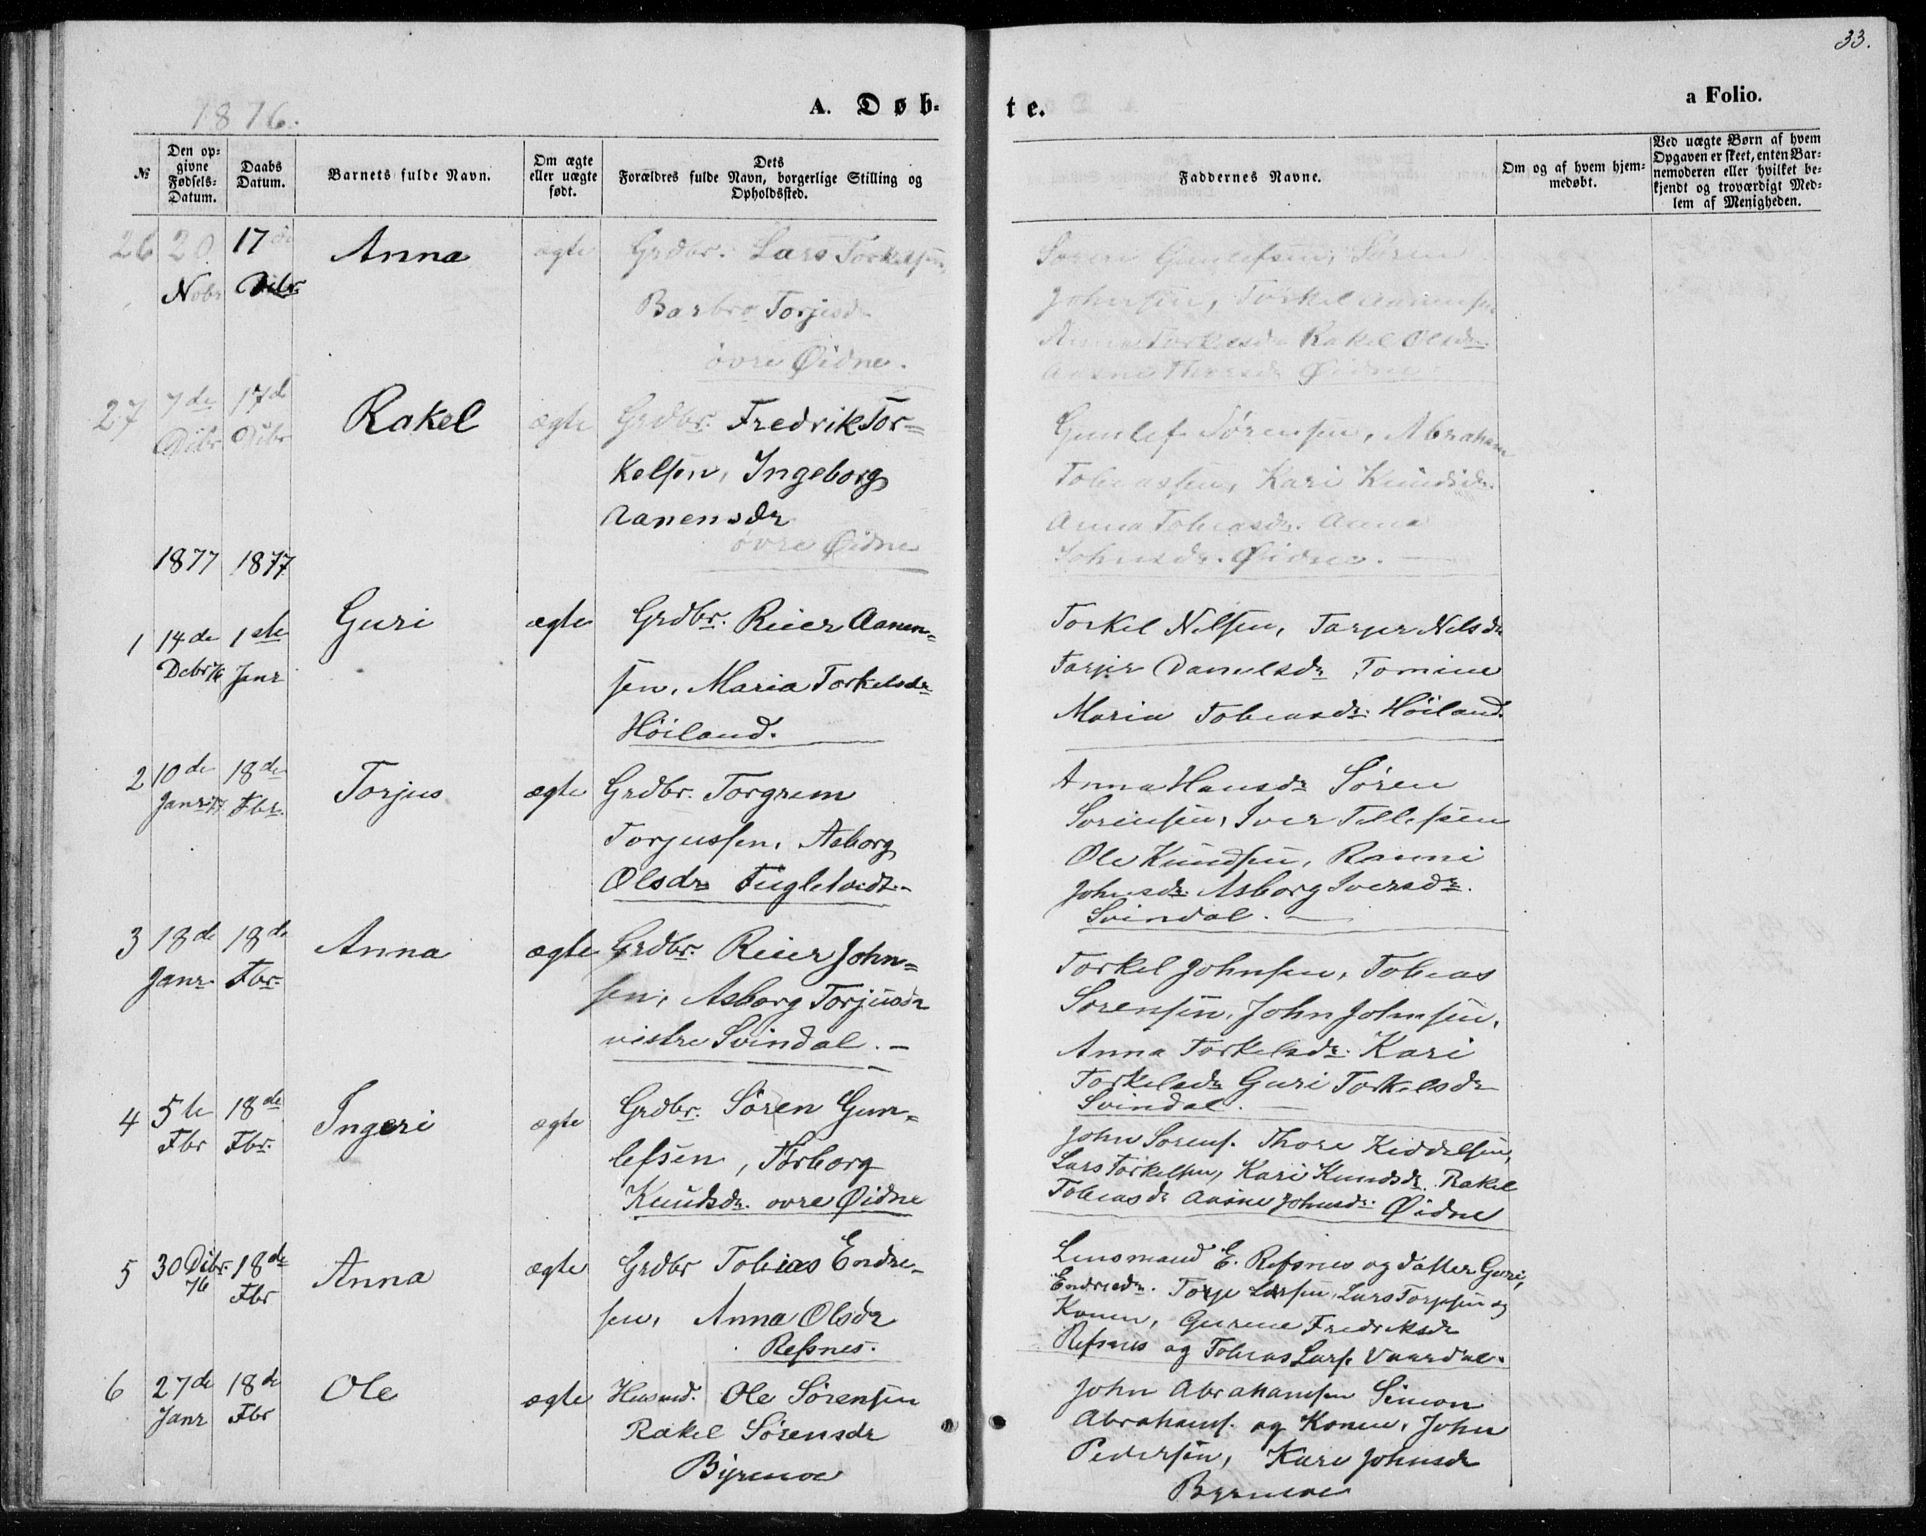 33.
1876.
A. Døb-
te.
a Folio.
№
Den op-
givne
Fødsels-
Datum.
Daabs
Datum.
Barnets fulde Navn.
Om ægte
eller uægte
født.
Dets
Forældres fulde Navn, borgerlige Stilling og
Opholdssted.
Faddernes Navne.
Om og af hvem hjem-
medøbt.
Ved uægte Børn af hvem
Opgaven er skeet, enten Bar-
nemoderen eller hvilket be-
kjendt og troværdigt Med-
lem af Menigheden.
26 20 Nobr
17de Dcbr
Anna
ægte
Grdbr. Lars Torkelsen,
Barbro Torjusdr
övre Øidne.
Søren Gunlefsen, Søren
Johnsen, Torkel Aanensen
Torkelsdr Rakel Olsdr
Thorsdr Øidne
27 7de Dcbr
17de Dcbr
Rakel
ægte
Grdbr. Fredrik Tor-
kelsen, Ingeborg
Aanensdr
övre Øidne
Gunlef Sörensen, Abraham
Tobiassen, Kari Knudsdr.
Anna Tobiasdr. Aasne
Johnsdr. Øidne. —
1877 1877
1 14de Debr 76
1ste Janr
Guri
ægte
Grdbr. Reier Aanen-
sen, Maria Torkelsdr
Höiland.
Torkel Nilsen, Tarjer Nilsdr
Tarjer Danielsdr Tomine
Maria Tobiasdr. Höiland.
2 10de Janr 77
18de Fbr.
Torjus
ægte
Grdbr. Torgrem
Torjussen, Asborg
Olsdr Fugletvedt.-
Anna Hansdr Sören
Sörensen, Iver Tellefsen
Ole Knudsen, Ranni
Johnsdr. Asborg Iversdr.
Svindal. —
3 18de Janr
18de Fbr.
Anna
ægte
Grdbr. Reier John-
sen, Asborg Torjusdr
vestre Svindal. —
Torkel Johnsen, Tobias
Sörensen, John Johnsen,
Anna Torkelsdr. Kari
Torkelsdr Guri Torkelsdr
Svindal. —
4 5te Fbr
18de Fbr.
Ingeri
ægte
Grdbr. Sören Gun-
lefsen, Torborg
Knudsdr. ovre Øidne
John Sörens. Thore Kiddelsen,
Lars Torkelsen, Kari Knudsdr. Rakel
Tobiasdr Aasne Johnsdr. Øidne
5 30 Dcbr 76
18de Fbr
Anna
ægte
Grdbr Tobias Endre-
sen, Anna Olsdr
Refsnes.
Lensmand E. Refsnes og datter Guri
Endresdr. Torje Larsen, Lars Torjesen og
Konen, Gurine Fredriksdr
Refsnes og Tobias Lars. Vaardal.
6 27de Janr
18de Fbr
Ole
ægte
Husmd. Ole Sörensen
Rakel Sörensdr
Byremoe
John Abrahamsen Simon
Abrahams. og Konen, John
Pedersen, Kari Johnsdr
Byremoe